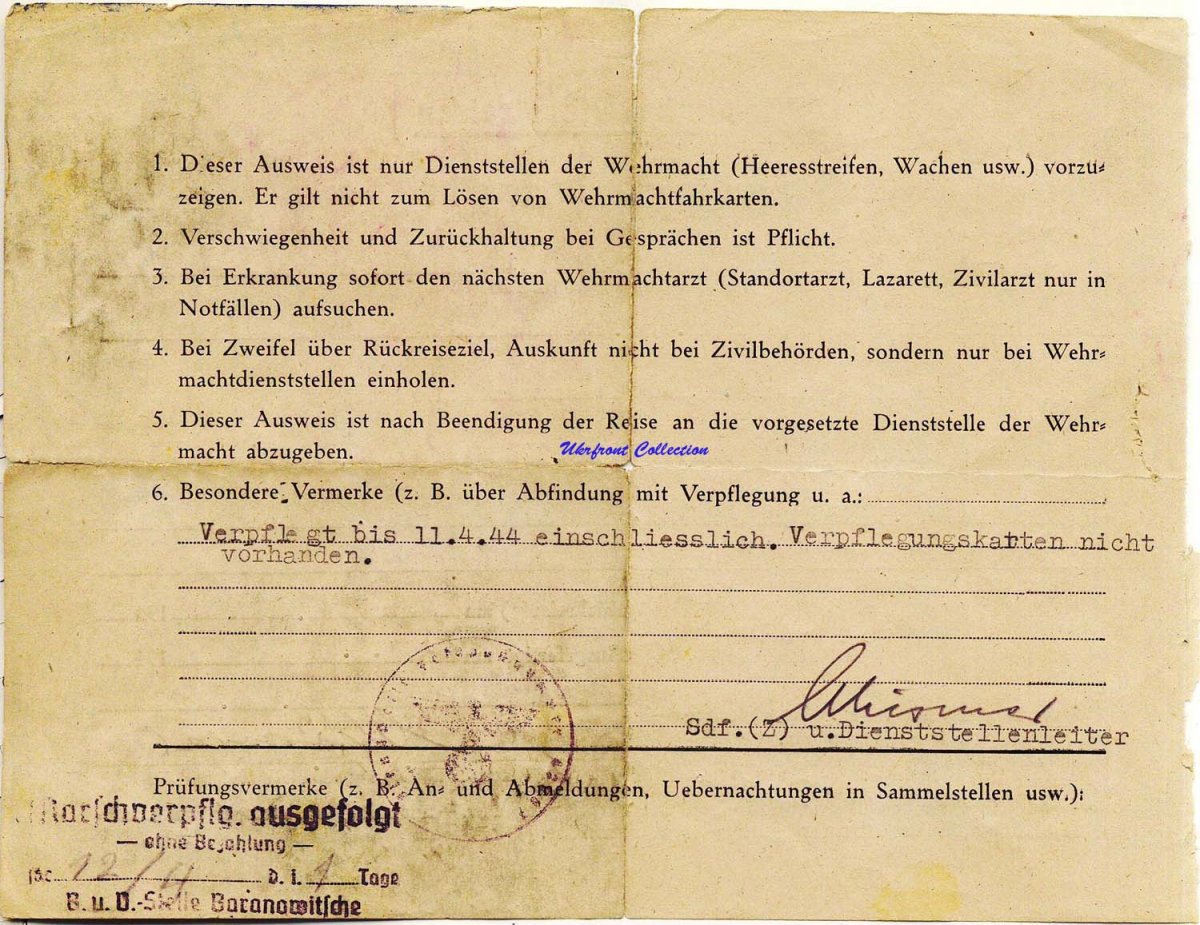 1. Dieser Ausweis ist nur Dienststellen der Wehrmacht (Heeresstreifen, Wachen usw.) vorzu=
zeigen. Er gilt nicht zum Lösen von Wehrmachtfahrkarten.
2. Verschwiegenheit und Zurückhaltung bei Gesprächen ist Pflicht.
3. Bei Erkrankung sofort den nächsten Wehrmachtarzt (Standortarzt, Lazarett, Zivilarzt nur in
Notfällen) aufsuchen.
4. Bei Zweifel über Rückreiseziel, Auskunft nicht bei Zivilbehörden, sondern nur bei Wehr=
machtdienststellen einholen.
5. Dieser Ausweis ist nach Beendigung der Reise an die vorgesetzte Dienststelle der Wehr=
macht abzugeben.
Ukrfront Collection
6. Besondere Vermerke (z. B. über Abfindung mit Verpflegung u. a.:
Verpflegt bis 11.4.44 einschliesslich. Verpflegungskarten nicht
vorhanden.
Sdf.(Z) u.Dienststellenleiter
Prüfungsvermerke (z. B. An= und Abmeldungen, Uebernachtungen in Sammelstellen usw.):
Marschverpflg. ausgefolgt
— ohne Bezahlung —
für 12/4 d. i. 1 Tage
B. u. V.-Stelle Baranowitsche